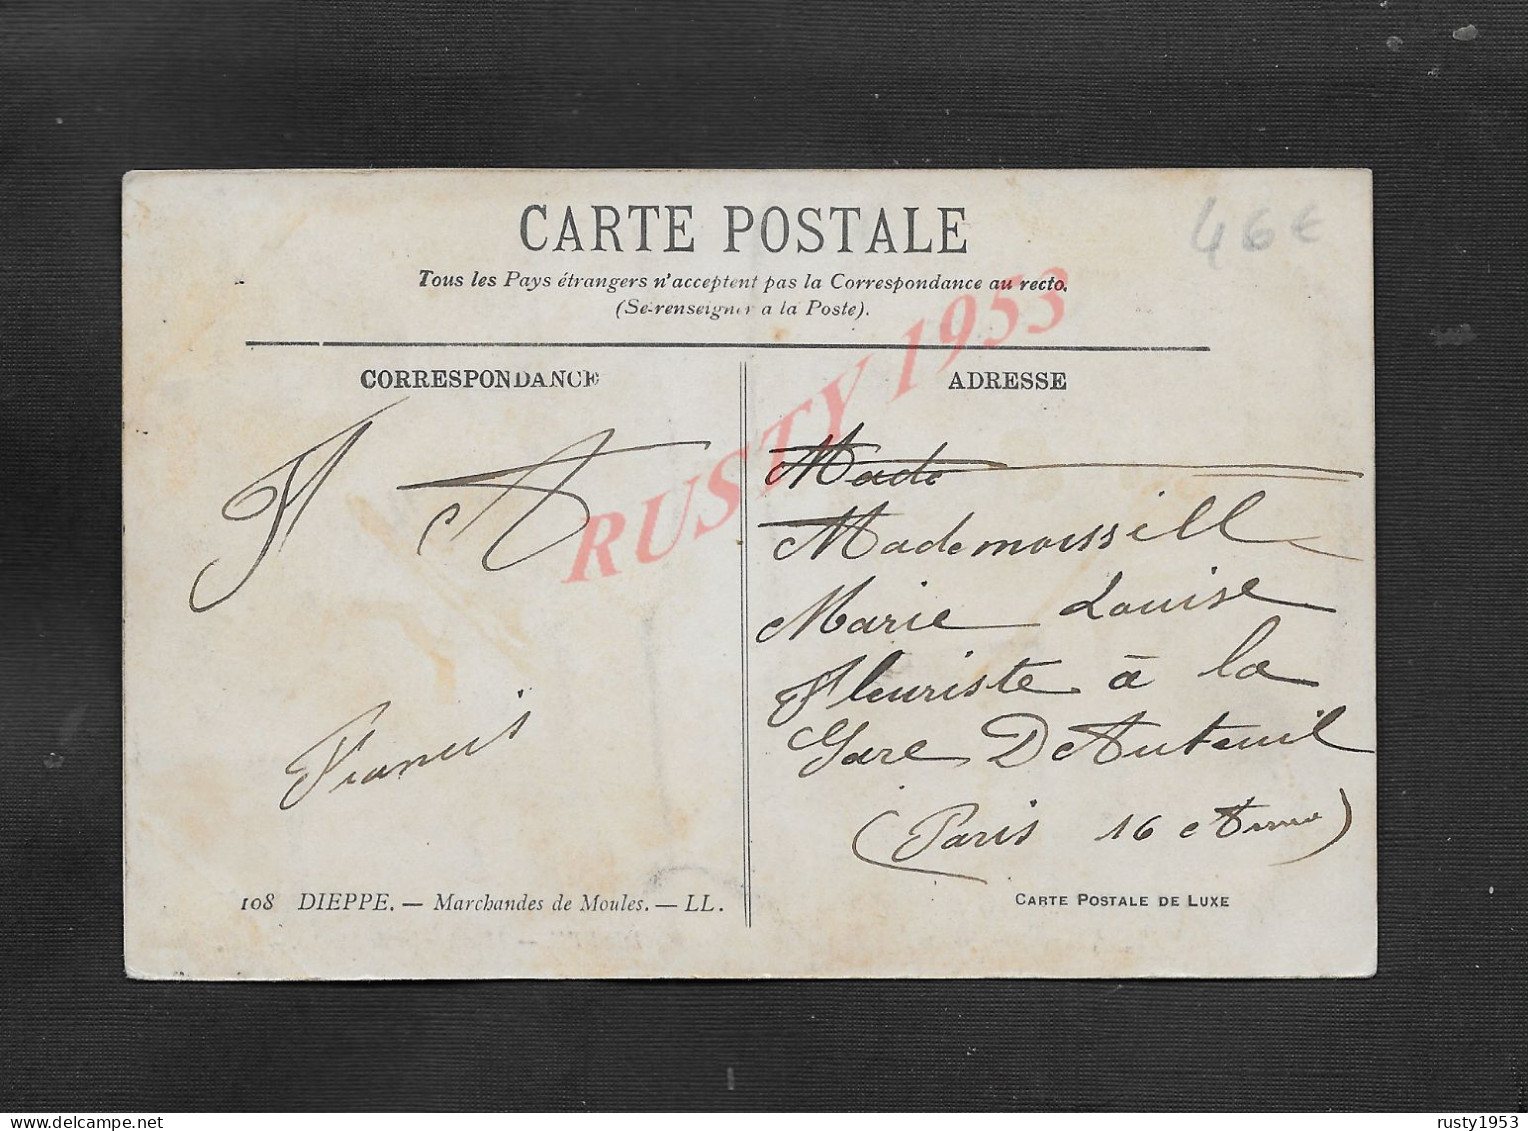 CARTE POSTALE
46€
Tous les Pays étrangers n'acceptent pas la Correspondance au recto.
(Se renseigner a la Poste).
CORRESPONDANCE
ADRESSE
RUSTY 1953
F A
Francis
Made
Mademoissill
Marie Louise
Fleuriste à la
Gare D'Auteuil
(Paris 16
108 DIEPPE. — Marchandes de Moules. — LL.
CARTE POSTALE DE LUXE
rusty1953